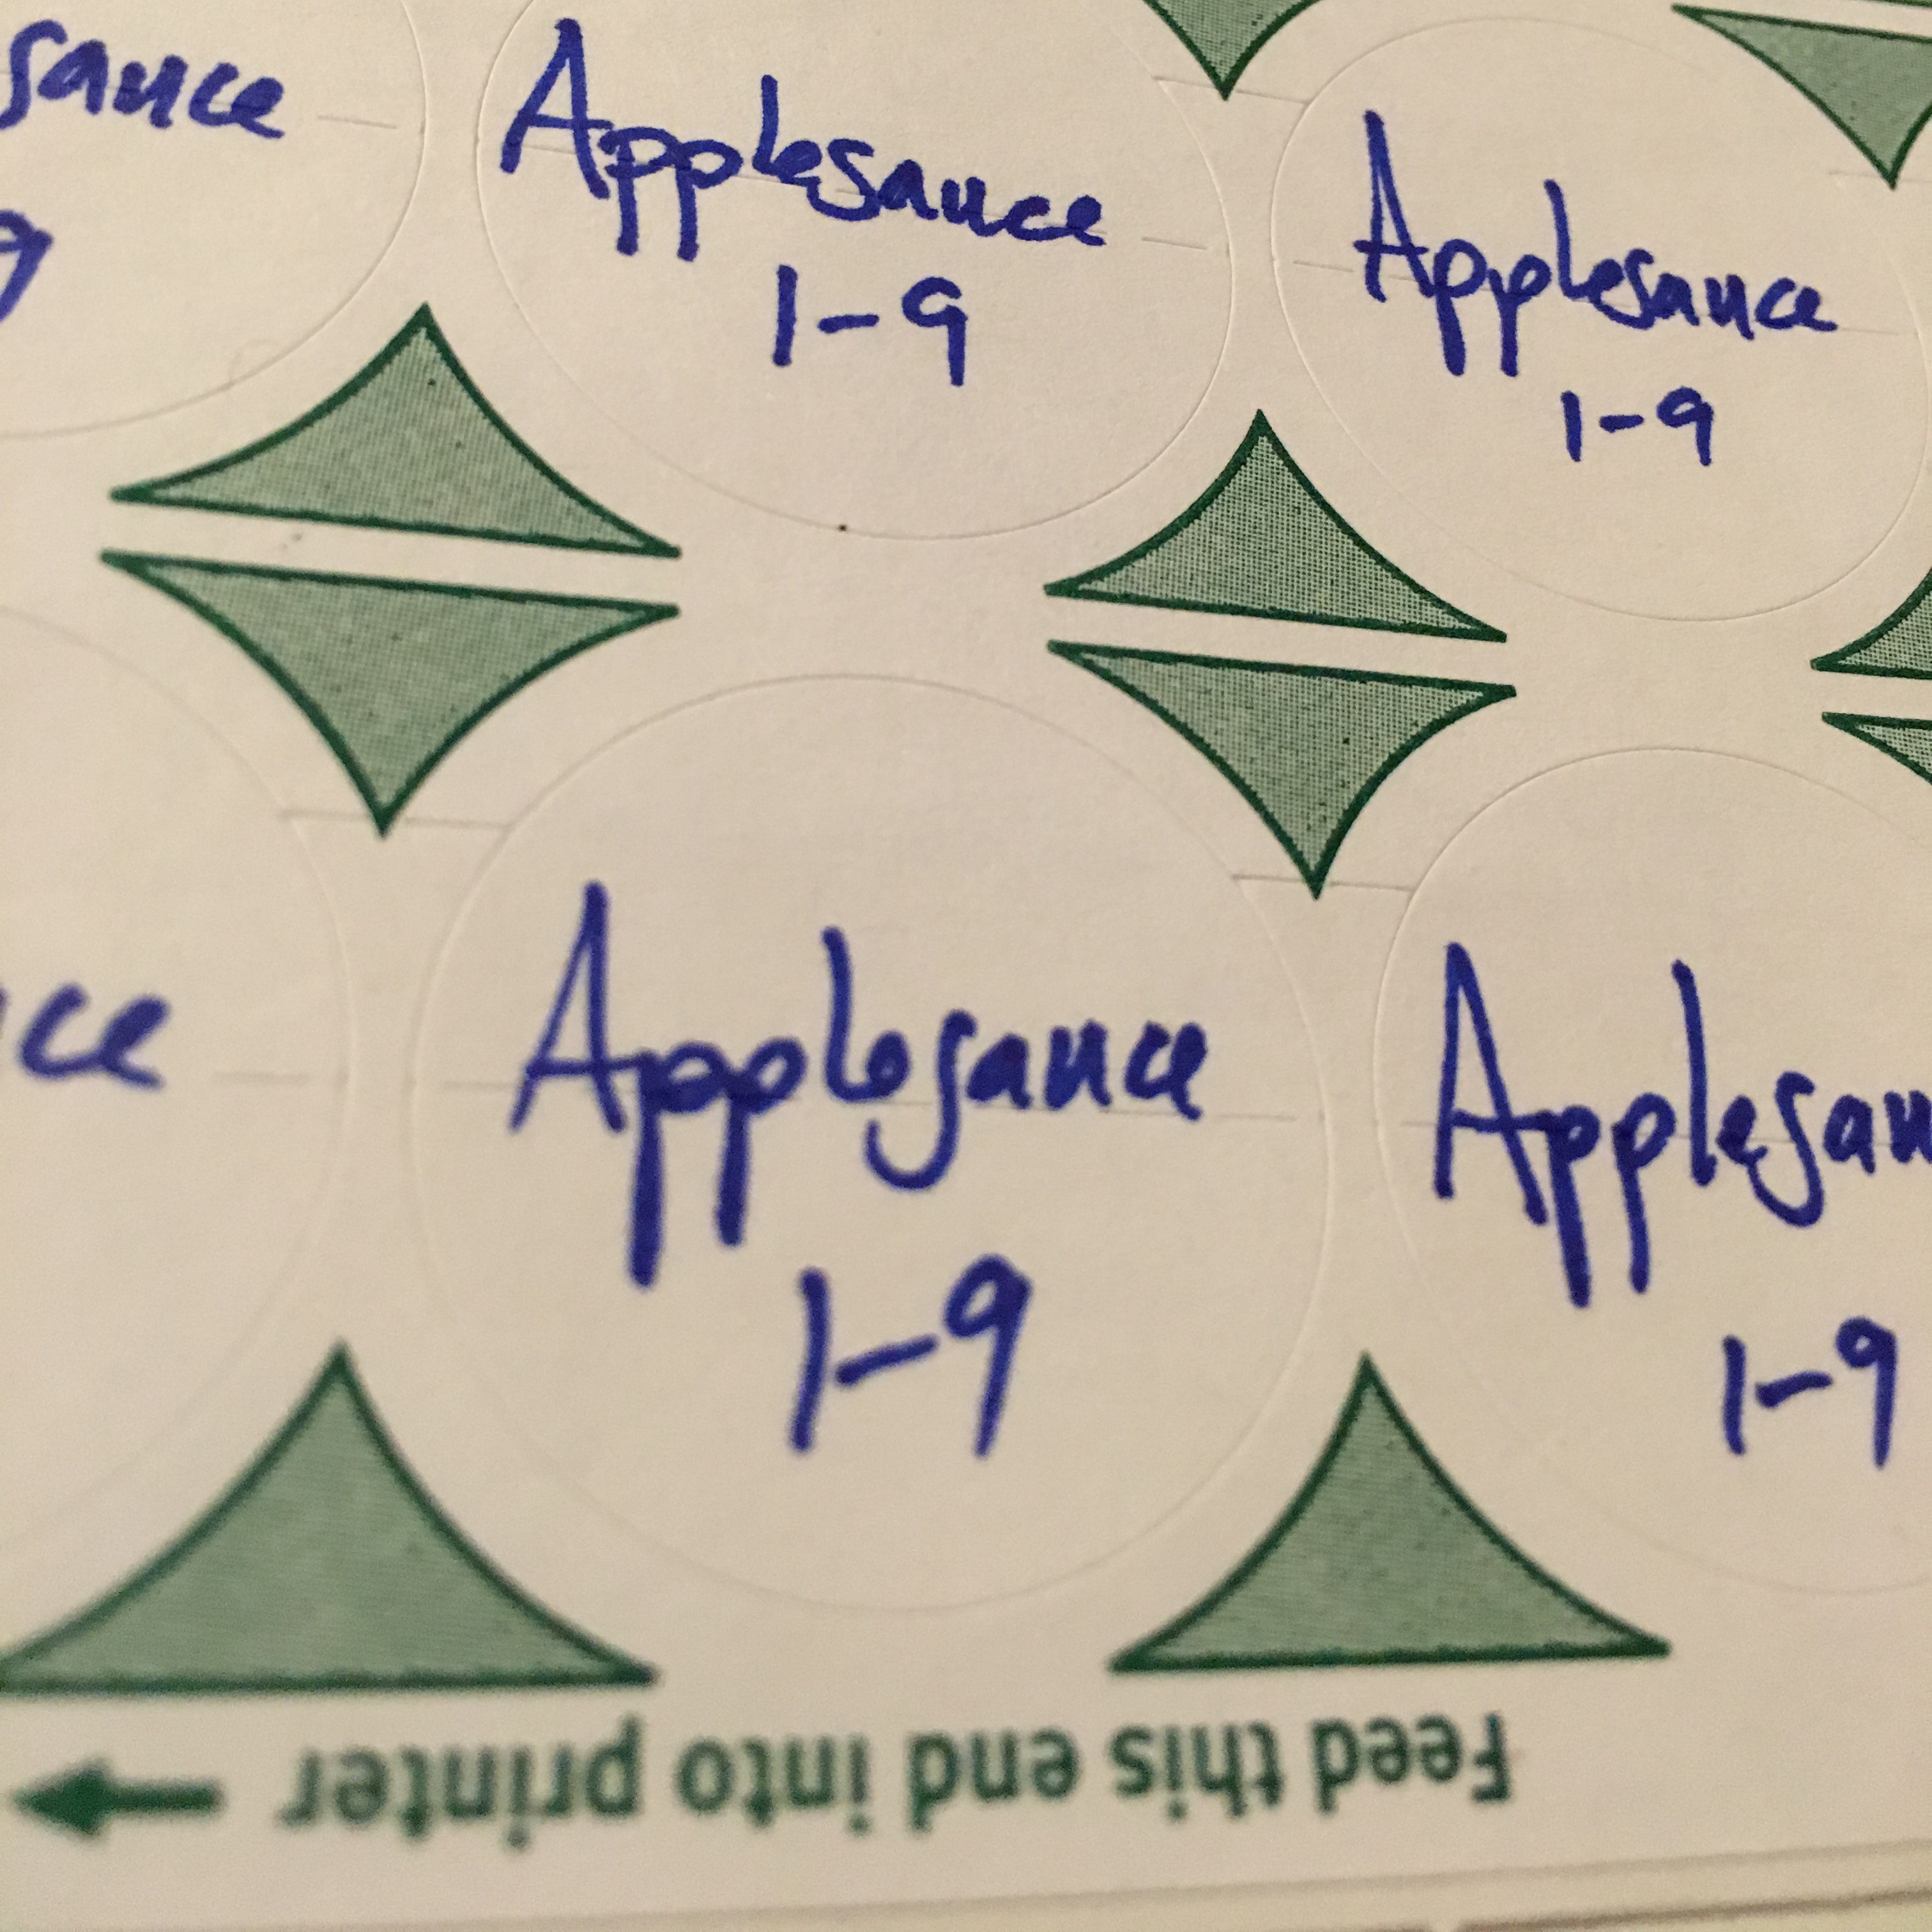 sauce
9
Applesauce
1-9
Applesauce
1-9
ce
Applesauce
1-9
Applesau
1-9
Feed this end into printer